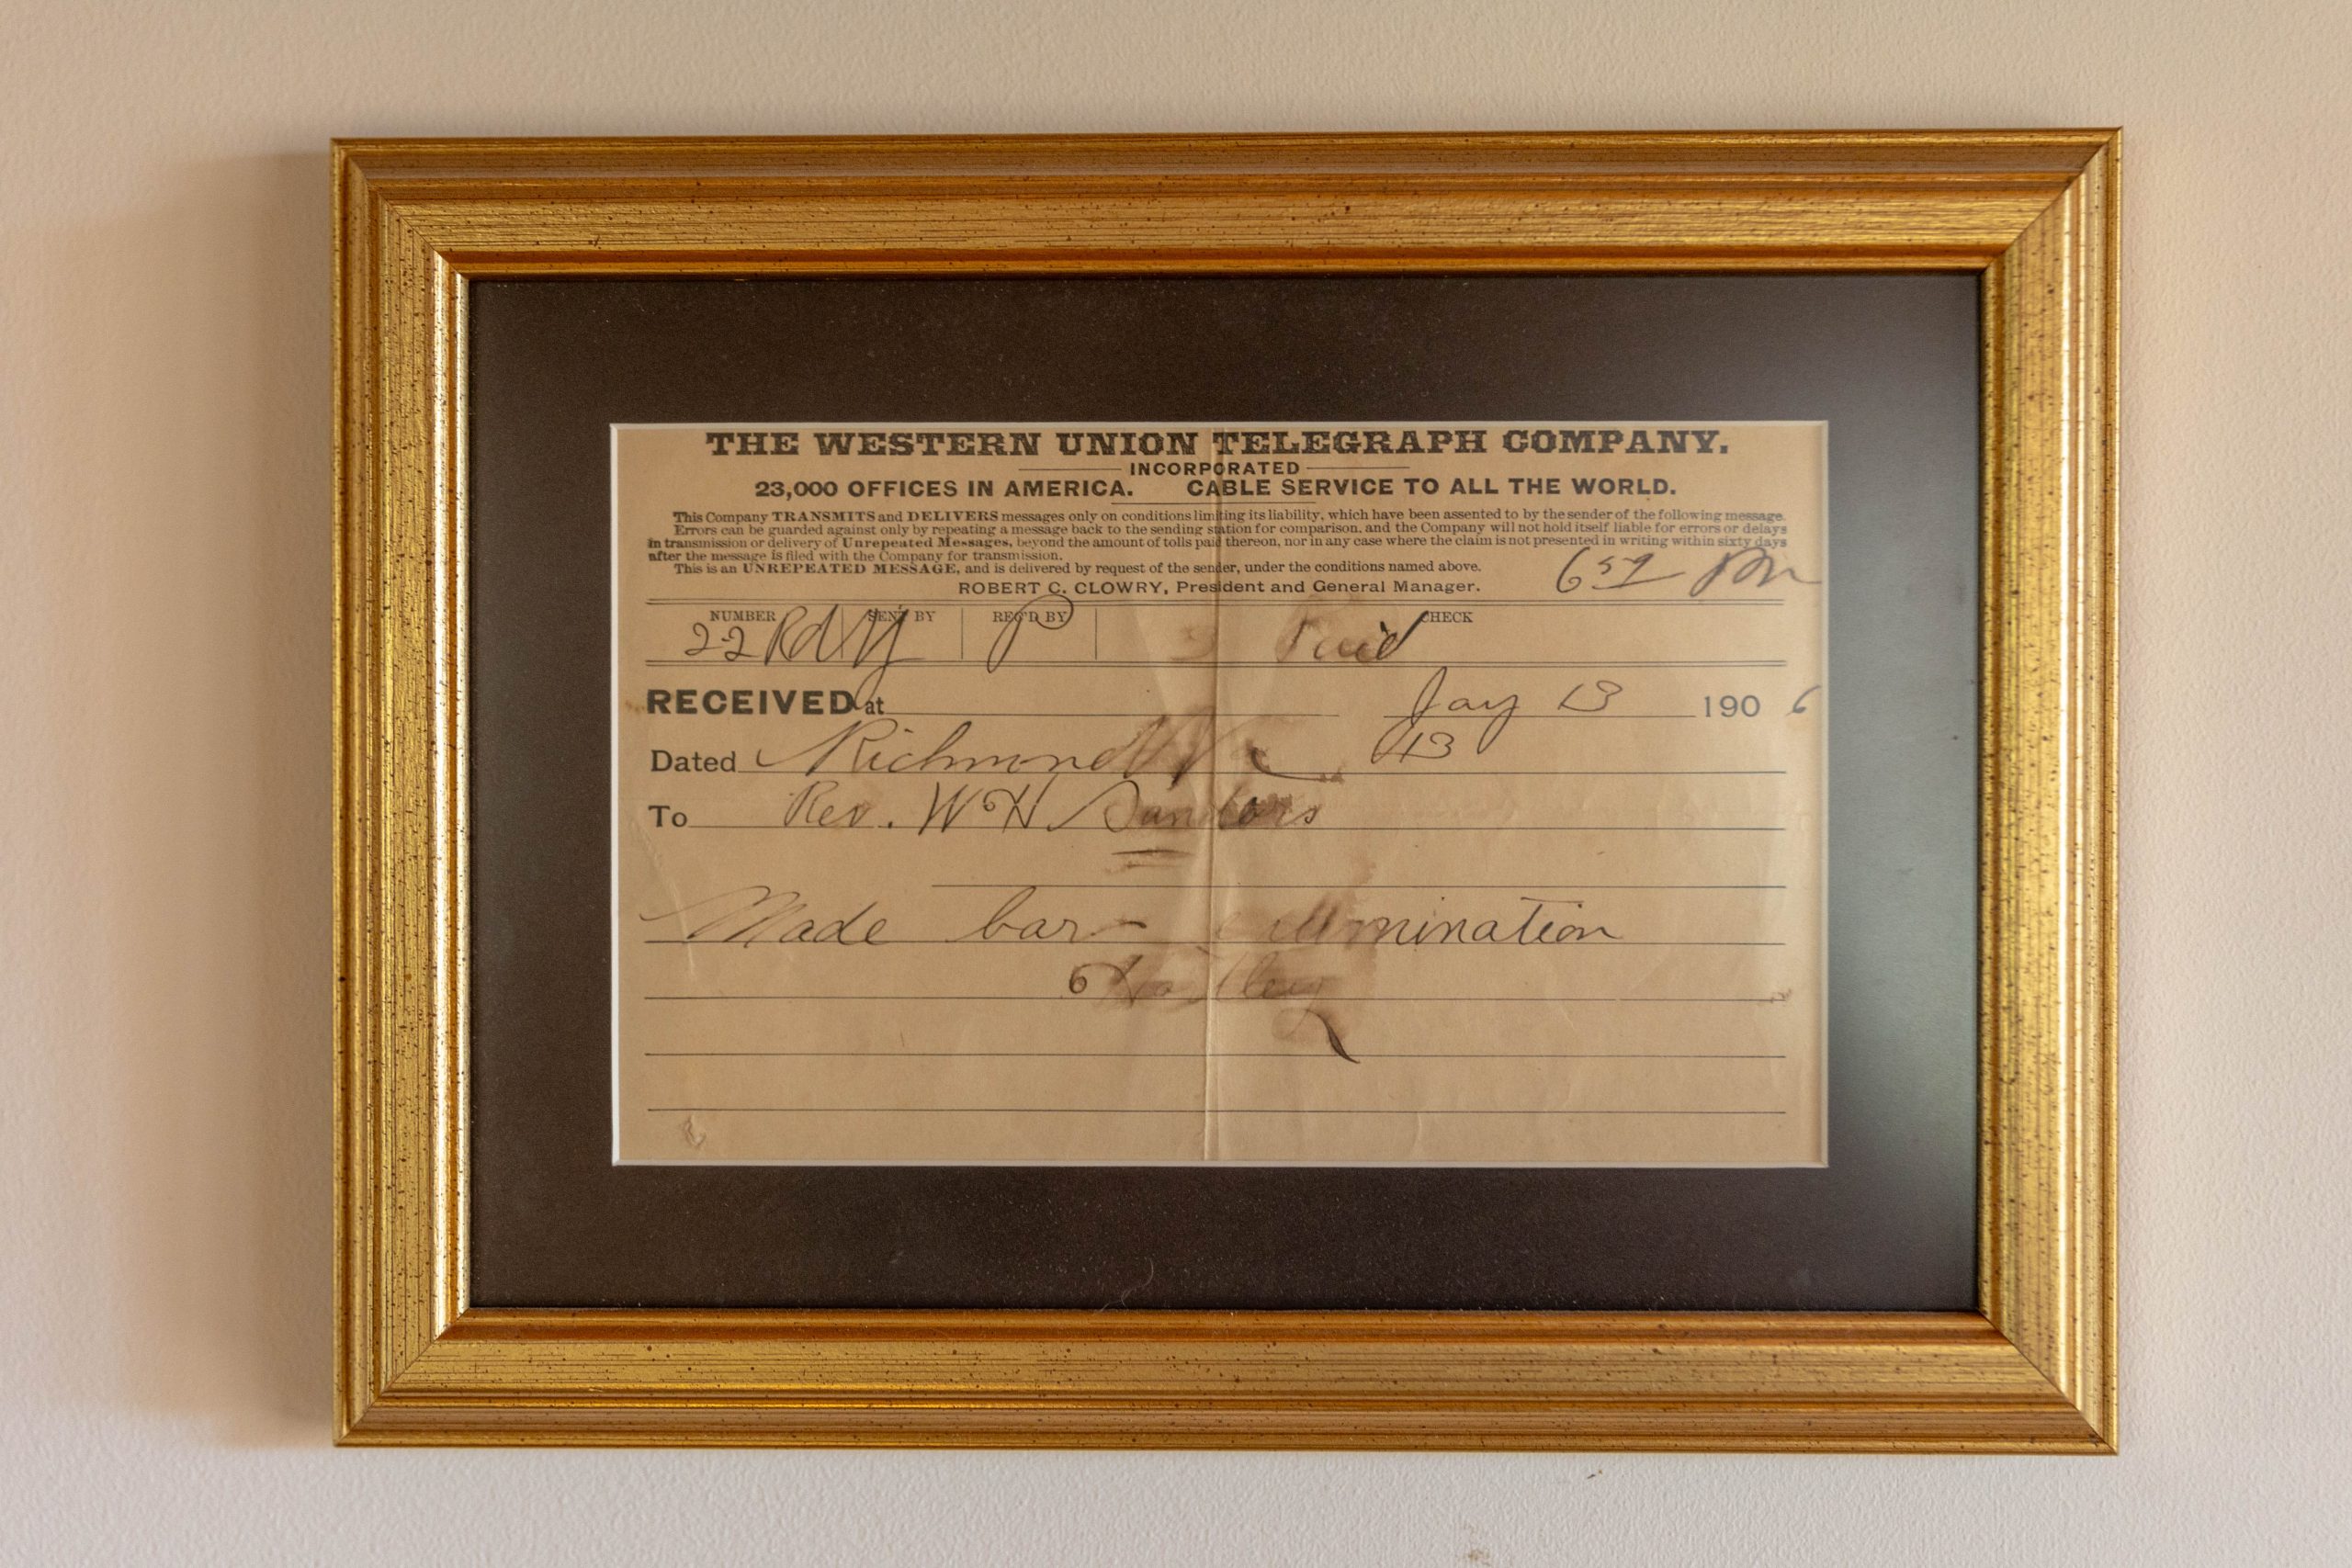 THE WESTERN UNION TELEGRAPH COMPANY.
INCORPORATED
23,000 OFFICES IN AMERICA. CABLE SERVICE TO ALL THE WORLD.
This Company TRANSMITS and DELIVERS messages only on conditions limiting its liability, which have been assented to by the sender of the following message.
Errors can be guarded against only by repeating a message back to the sending station for comparison, and the Company will not hold itself liable for errors or delays
in transmission or delivery of Unrepeated Messages, beyond the amount of tolls paid thereon, nor in any case where the claim is not presented in writing within sixty days
after the message is filed with the Company for transmission.
This is an UNREPEATED MESSAGE, and is delivered by request of the sender, under the conditions named above.
ROBERT C. CLOWRY, President and General Manager.
NUMBER SENT BY REC'D BY CHECK
22 P Paid
RECEIVED at 13 1906
Dated Richmond Va 13
To Rev. W H Sanders
Made bar